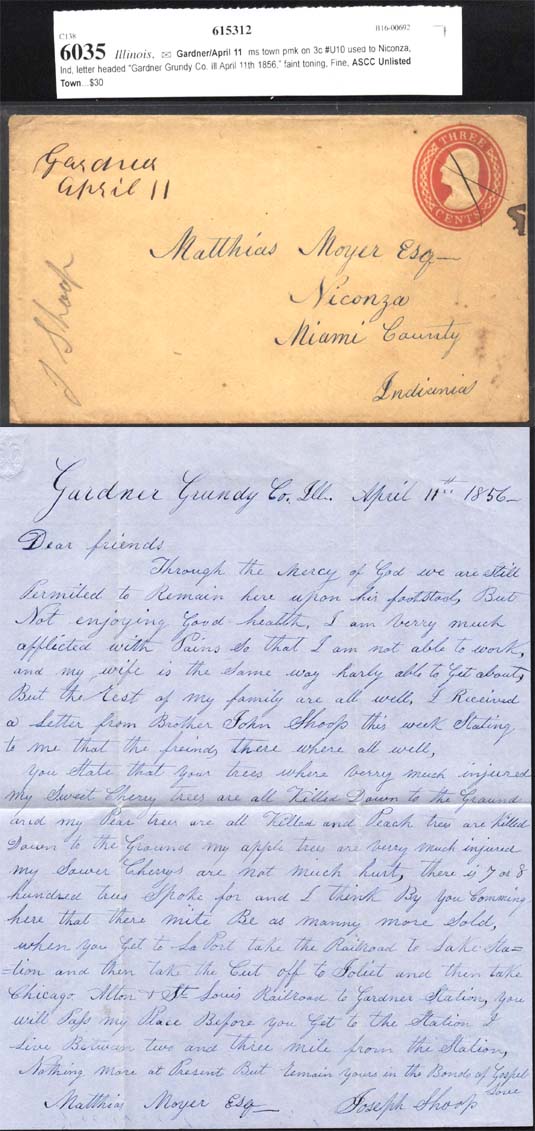 C138
615312
B16-00692
6035 Illinois, ✉ Gardner/April 11 ms town pmk on 3c #U10 used to Niconza,
Ind, letter headed "Gardner Grundy Co. ill April 11th 1856," faint toning, Fine, ASCC Unlisted
Town...$30
Gardner
April 11
THREE
CENTS
Matthias Moyer Esq
Niconza
Miami County
Indiania
J Shoop
Gardner Grundy Co. Ill. April 11th 1856
Dear friends
Through the Mercy of God we are Still
Permited to Remain here upon his footstool, But
Not enjoying Good health, I am verry much
afflicted with Pains So that I am not able to work,
and my wife is the Same way harly able to Get about,
But the rest of my family are all well, I Received
a Letter from Brother John Shoop this week Stating
to me that the freinds there where all well,
You State that Your trees where verry much injured
my Sweet Cherry trees are all Killed Down to the Ground
and my Pear trees are all Killed and Peach trees are Killed
Down to the Ground my apple trees are verry much injured
my Sower Cherrys are not much hurt, there is 7 or 8
hundred trees Spoke for and I think By You Comming
here that there mite Be as manny more Sold,
when you Get to La Port take the Railroad to Lake Sta=
=tion and then take the Cut off to Joliet and then take
Chicago Alton & St Louis Railroad to Gardner Station, you
will Pass my Place Before you Get to the Station I
Live Betwan two and three mile from the Station,
Nothing more at Present But remain Yours in the Bonds of Gospel
Love
Matthias Moyer Esq Joseph Shoop